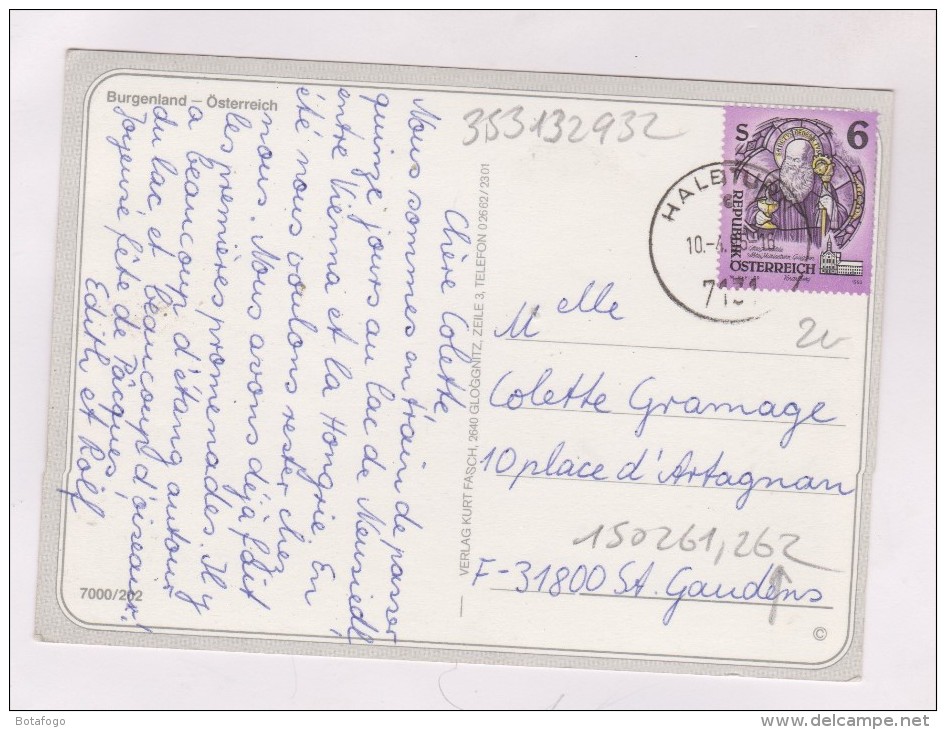 Burgenland – Österreich
353132932
Chère Colette,
Nous sommes en train de passer
quinze jours au lac de Neusiedl,
entre Vienna et la Hongrie. En
été nous voulons rester chez
nous. Nous avons déjà fait
les premières promenades. Il y
a beaucoup d'étang autour
du lac, et beaucoup d'oiseaux!
Joyeuse fête de Pâcques!
Edith et Rolf
7000/202
VERLAG KURT FASCH, 2640 GLOGGNITZ, ZEILE 3, TELEFON 02662/2301
S 6
REPUBLIK
ÖSTERREICH
HALBTURN
10.-4.
7131
20
Melle
Colette Gramage
10 place d'Artagnan
150261,262
F-31800 St. Gaudens
©
Botafogo
www.delcampe.net